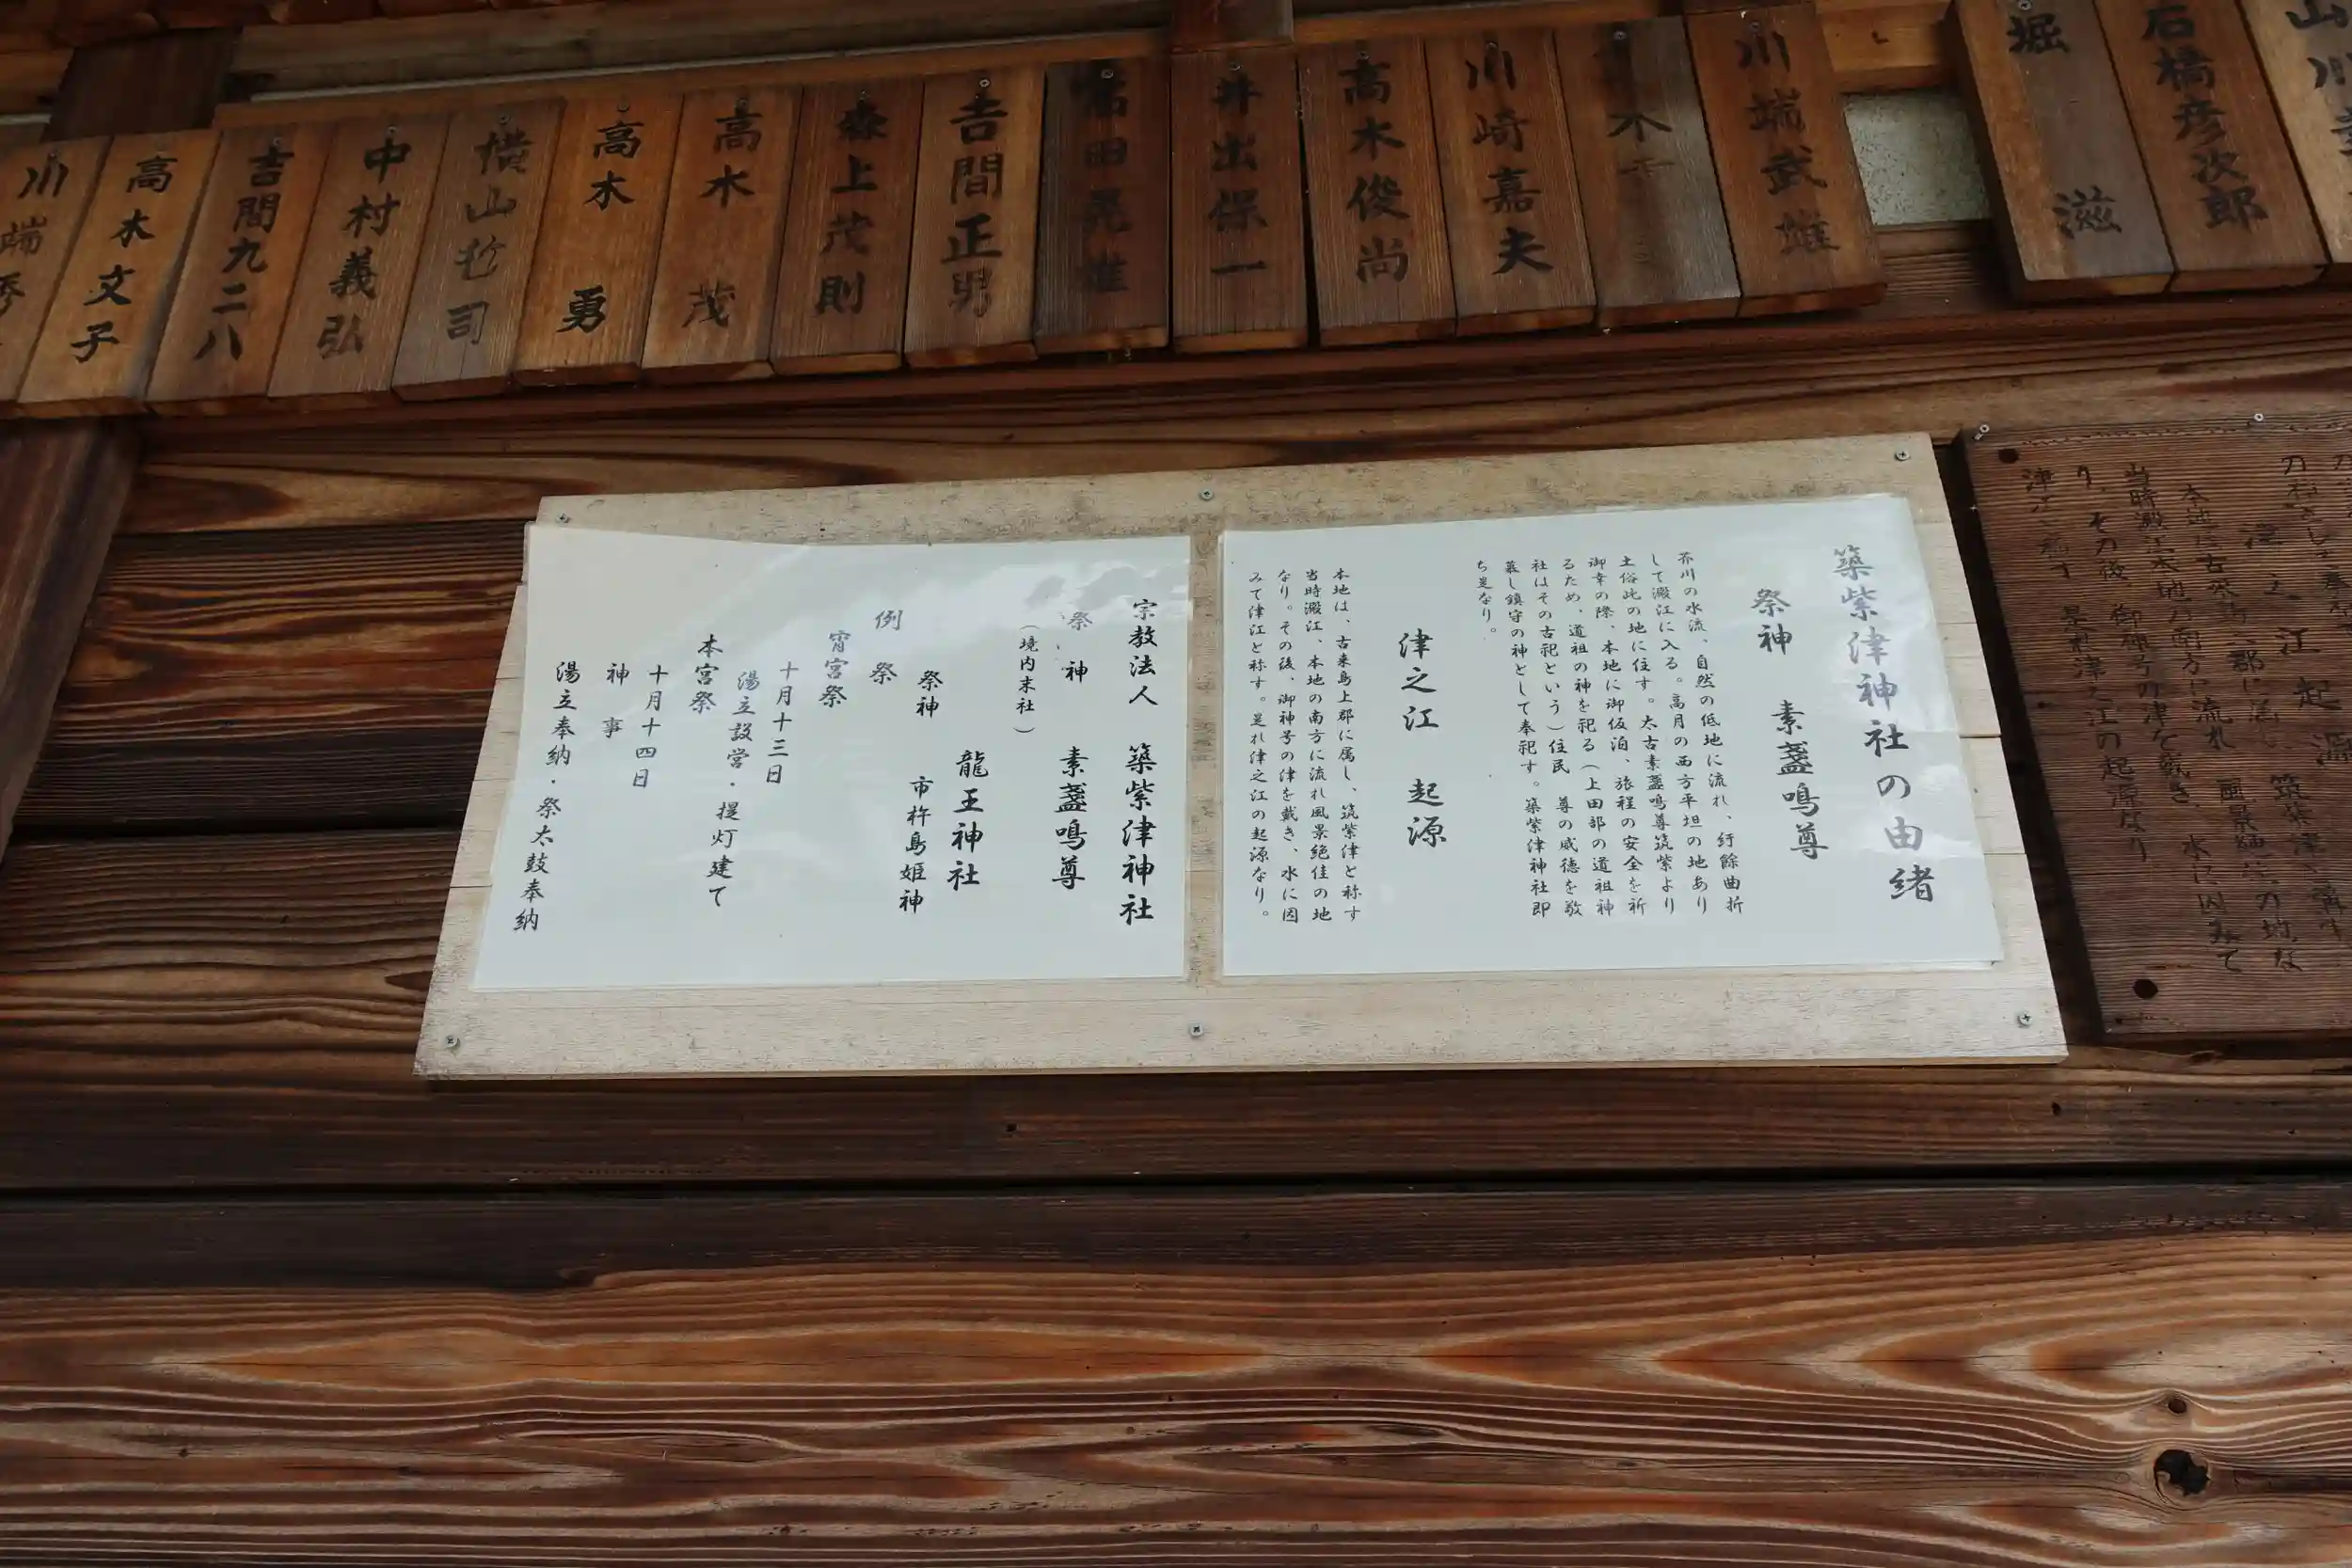 川端
高木文子
吉間九二八
中村義弘
横山哲司
高木 勇
高木 茂
森上茂則
吉間正男
井出保一
高木俊尚
川崎嘉夫
川端武雄
堀 滋
石橋彦次郎
山川
築紫津神社の由緒
祭神 素盞鳴尊
芥川の水流、自然の低地に流れ、紆餘曲折
して澱江に入る。高月の西方平坦の地あり
土俗此の地に住す。太古素盞鳴尊筑紫より
御幸の際、本地に御仮泊、旅程の安全を祈
るため、道祖の神を祀る(上田部の道祖神
社はその古祀という)住民 尊の威徳を敬
慕し鎮守の神として奉祀す。築紫津神社即
ち是なり。
津之江 起源
本地は、古来島上郡に属し、筑紫津と称す
当時澱江、本地の南方に流れ風景絶佳の地
なり。その後、御神号の津を戴き、水に因
みて津江と称す。是れ津之江の起源なり。
宗教法人 築紫津神社
祭神 素盞鳴尊
(境内末社)
龍王神社
祭神 市杵島姫神
例祭
宵宮祭
十月十三日
湯立設営・提灯建て
本宮祭
十月十四日
神事
湯立奉納・祭太鼓奉納
津之江起源
当時澱江本地の南方に流れ 風景絶佳の地な
り、その後 御神号の津を戴き、水に因みて
津江と称す 是れ津之江の起源なり